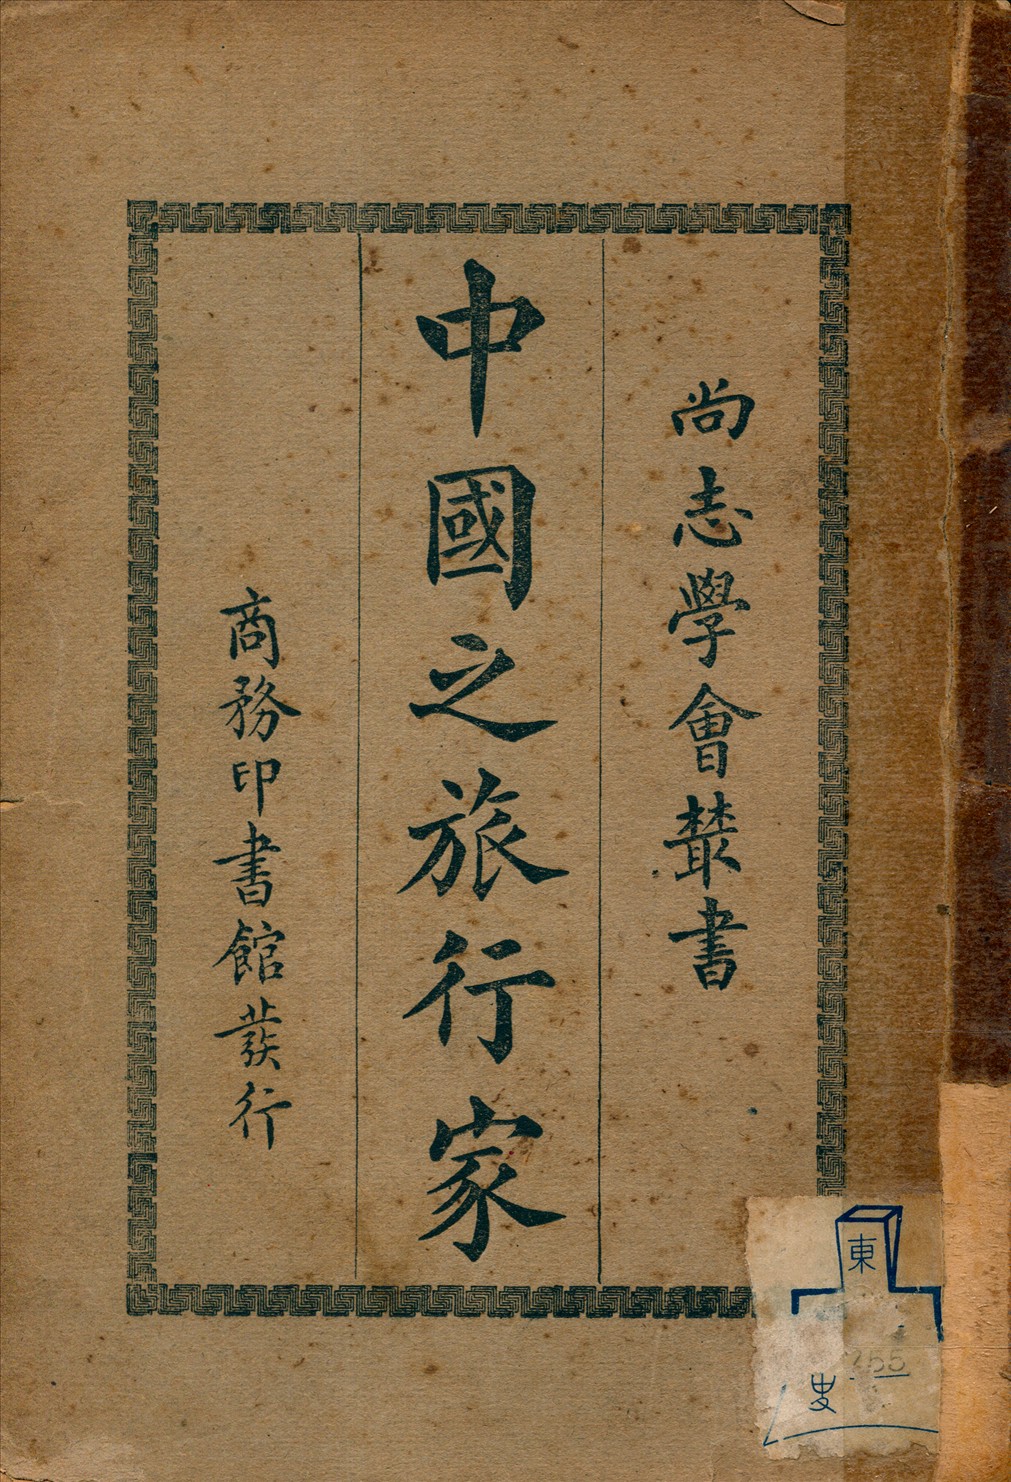 尚志學會叢書
中國之旅行家
商務印書館發行
東
255
史